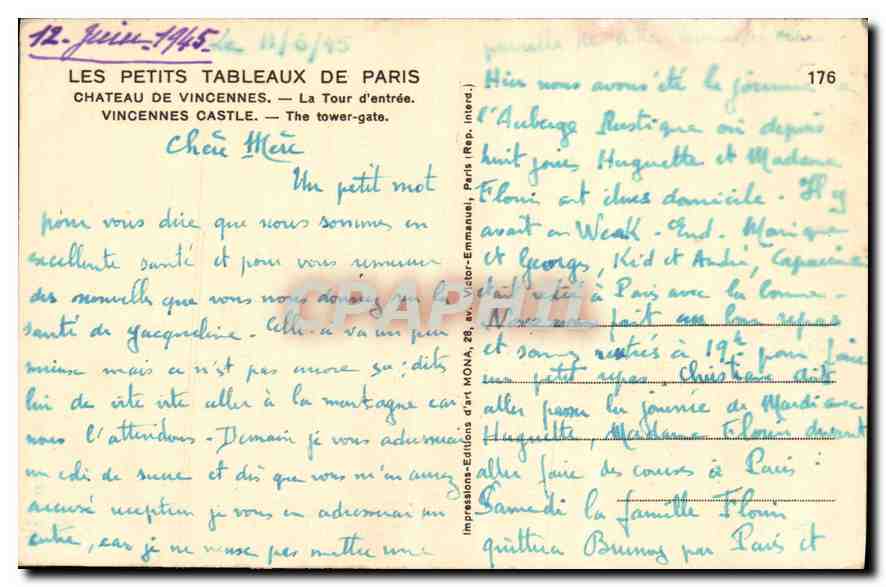 12. Juin 1945.
Le 11/6/45
LES PETITS TABLEAUX DE PARIS
CHATEAU DE VINCENNES. — La Tour d'entrée.
VINCENNES CASTLE. — The tower-gate.
Chère Mère
Un petit mot
pour vous dire que nous sommes en
excellente santé et pour vous remercier
des nouvelles que vous nous donniez sur la
santé de Jacqueline. Celle-ci va un peu
mieux mais ce n'est pas encore ça; dites
lui de vite vite aller à la montagne car
nous l'attendons - Demain je vous adresserai
un colis de sucre et dès que vous m'en aurez
accusé réception je vous en adresserai un
autre, car je ne veux pas mettre une
Impressions-Editions d'art MONA, 28, av. Victor-Emmanuel, Paris (Rep. interd.)
176
Hier nous avons été la journée à
l'Auberge Rustique où depuis
huit jours Huguette et Madame
Flouin ont élues domicile. Il y
avait en Weak-End. Monique
et Georges, Kid et André, Capucine
était restée à Paris avec la bonne.
Nous avons fait un bon repas
et sommes rentrés à 19h pour faire
un petit repas. Christiane doit
aller passer la journée de Mardi avec
Huguette, Madame Flouin devant
aller faire des courses à Paris :
Samedi la famille Flouin
quittera Brunoy par Paris et
CPAPHIL